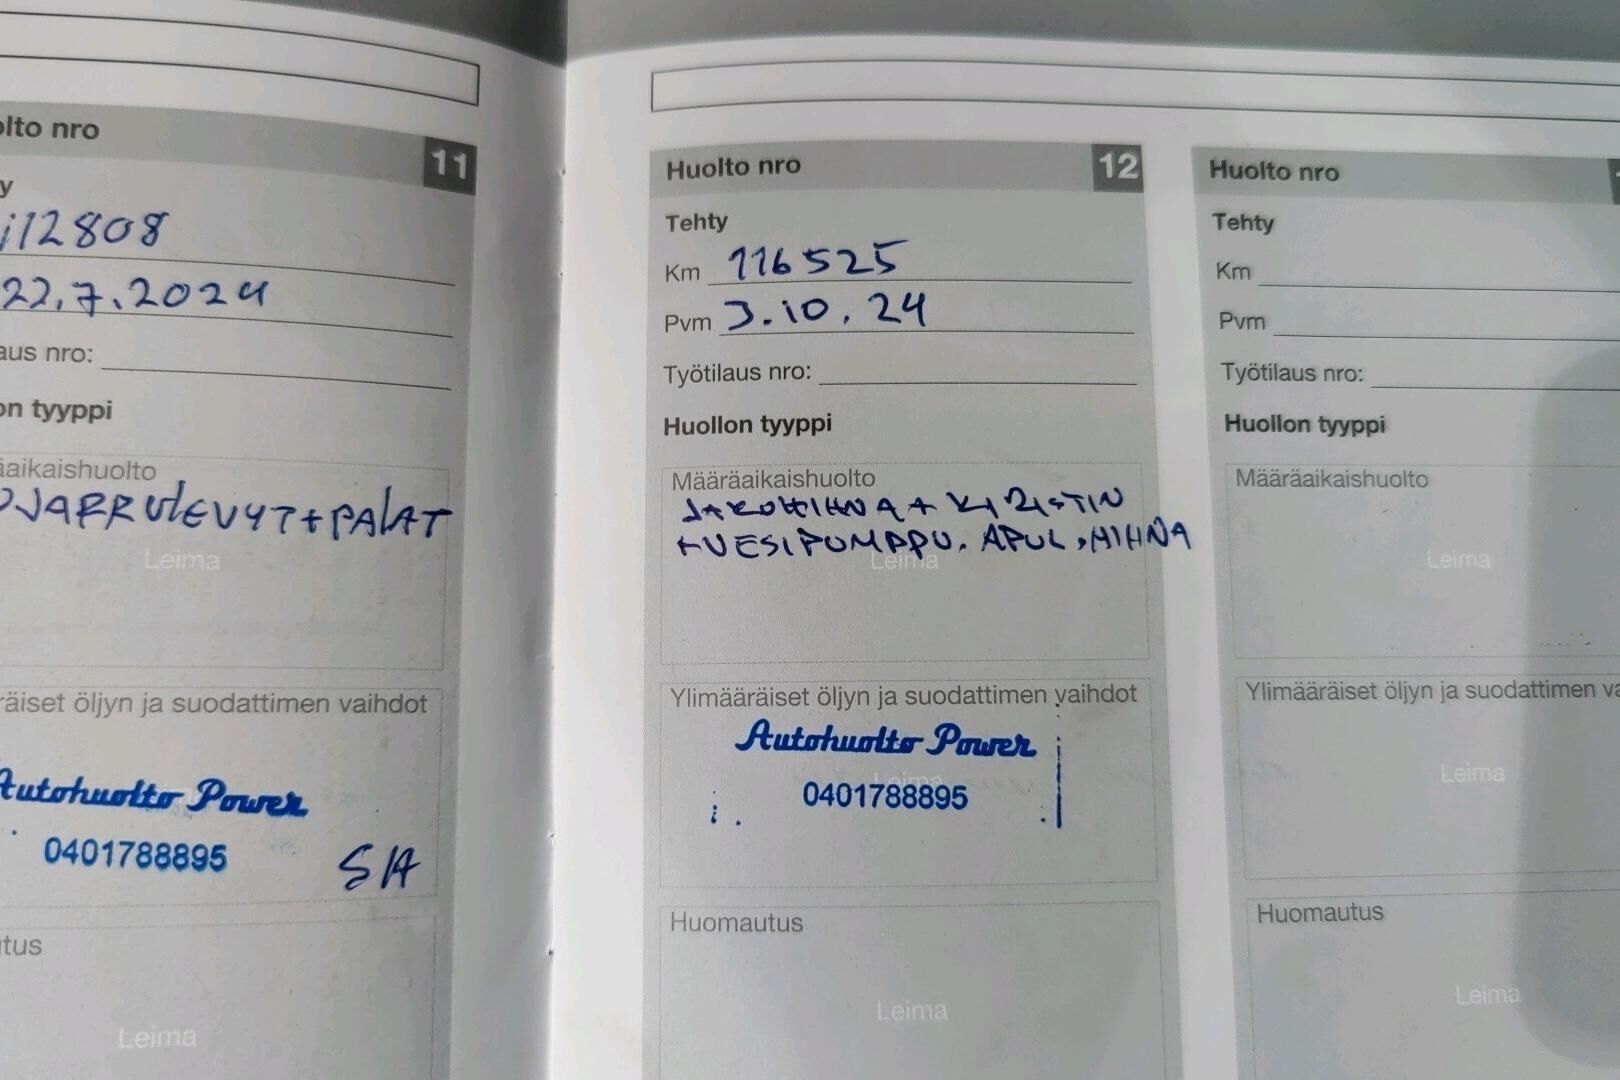 olto nro 11
y
112808
22.7.2024
aus nro:
on tyyppi
äaikaishuolto
JARRULEVYT + PALAT
Leima
räiset öljyn ja suodattimen vaihdot
Autohuolto Power
0401788895
SA
tus
Leima
Huolto nro 12
Tehty
Km 116525
Pvm 3.10.24
Työtilaus nro:
Huollon tyyppi
Määräaikaishuolto
JAKOHIHNA + KIRISTIN
+VESIPUMPPU. APUL.HIHNA
Leima
Ylimääräiset öljyn ja suodattimen vaihdot
Autohuolto Power
Leima
0401788895
Huomautus
Leima
Huolto nro
Tehty
Km
Pvm
Työtilaus nro:
Huollon tyyppi
Määräaikaishuolto
Leima
Ylimääräiset öljyn ja suodattimen va
Leima
Huomautus
Leima